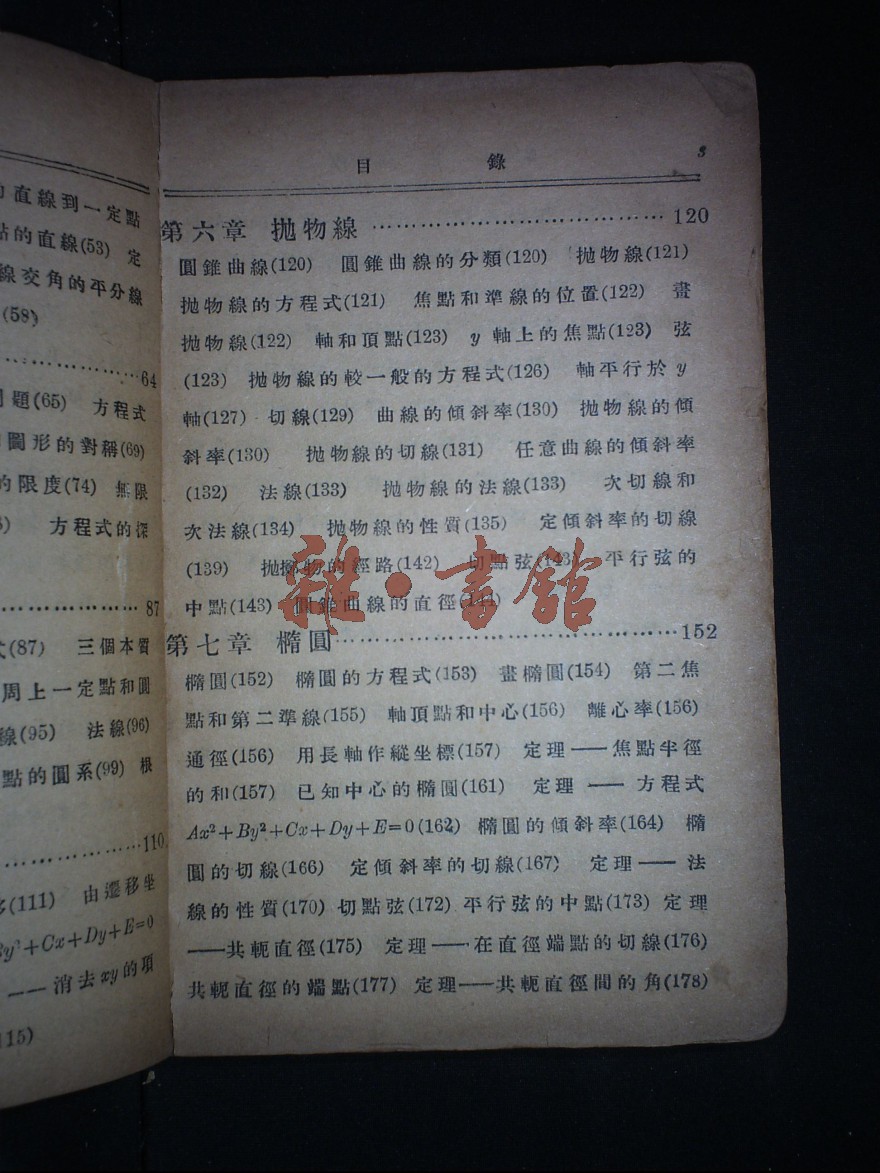 的直線到一定點
點的直線(53) 定
線交角的平分線
(58)
64
問題(65) 方程式
圖形的對稱(69)
的限度(74) 無限
方程式的探
87
式(87) 三個本質
周上一定點和圓
線(95) 法線(96)
點的圓系(99) 根
110
(111) 由遷移坐
By²+Cx+Dy+E=0
——消去xy的項
115)
目 錄 3
第六章 拋物線 …………………………… 120
圓錐曲線(120) 圓錐曲線的分類(120) 拋物線(121)
拋物線的方程式(121) 焦點和準線的位置(122) 畫
拋物線(122) 軸和頂點(123) y 軸上的焦點(123) 弦
(123) 拋物線的較一般的方程式(126) 軸平行於 y
軸(127) 切線(129) 曲線的傾斜率(130) 拋物線的傾
斜率(130) 拋物線的切線(131) 任意曲線的傾斜率
(132) 法線(133) 拋物線的法線(133) 次切線和
次法線(134) 拋物線的性質(135) 定傾斜率的切線
(139) 拋擲物的經路(142) 切點弦(143) 平行弦的
中點(143) 圓錐曲線的直徑(144)
雜·書館
第七章 橢圓 …………………………… 152
橢圓(152) 橢圓的方程式(153) 畫橢圓(154) 第二焦
點和第二準線(155) 軸頂點和中心(156) 離心率(156)
通徑(156) 用長軸作縱坐標(157) 定理——焦點半徑
的和(157) 已知中心的橢圓(161) 定理——方程式
Ax²+By²+Cx+Dy+E=0(162) 橢圓的傾斜率(164) 橢
圓的切線(166) 定傾斜率的切線(167) 定理——法
線的性質(170) 切點弦(172) 平行弦的中點(173) 定理
——共軛直徑(175) 定理——在直徑端點的切線(176)
共軛直徑的端點(177) 定理——共軛直徑間的角(178)